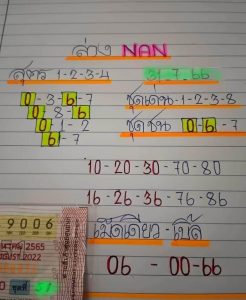 ล่าง NAN
สูตร 1-2-3-4
31-7-66
0-3-6-7
0-8-6
0-1-2
6-7
ชุดเด่น-1-2-3-8
ชุดชน 0-6-7
10-20-30-70-80
16-26-36-76-86
เม็ดเดียว-เป๊ะ
06-00-66
9006
2565
2022
ชุดที่ 51